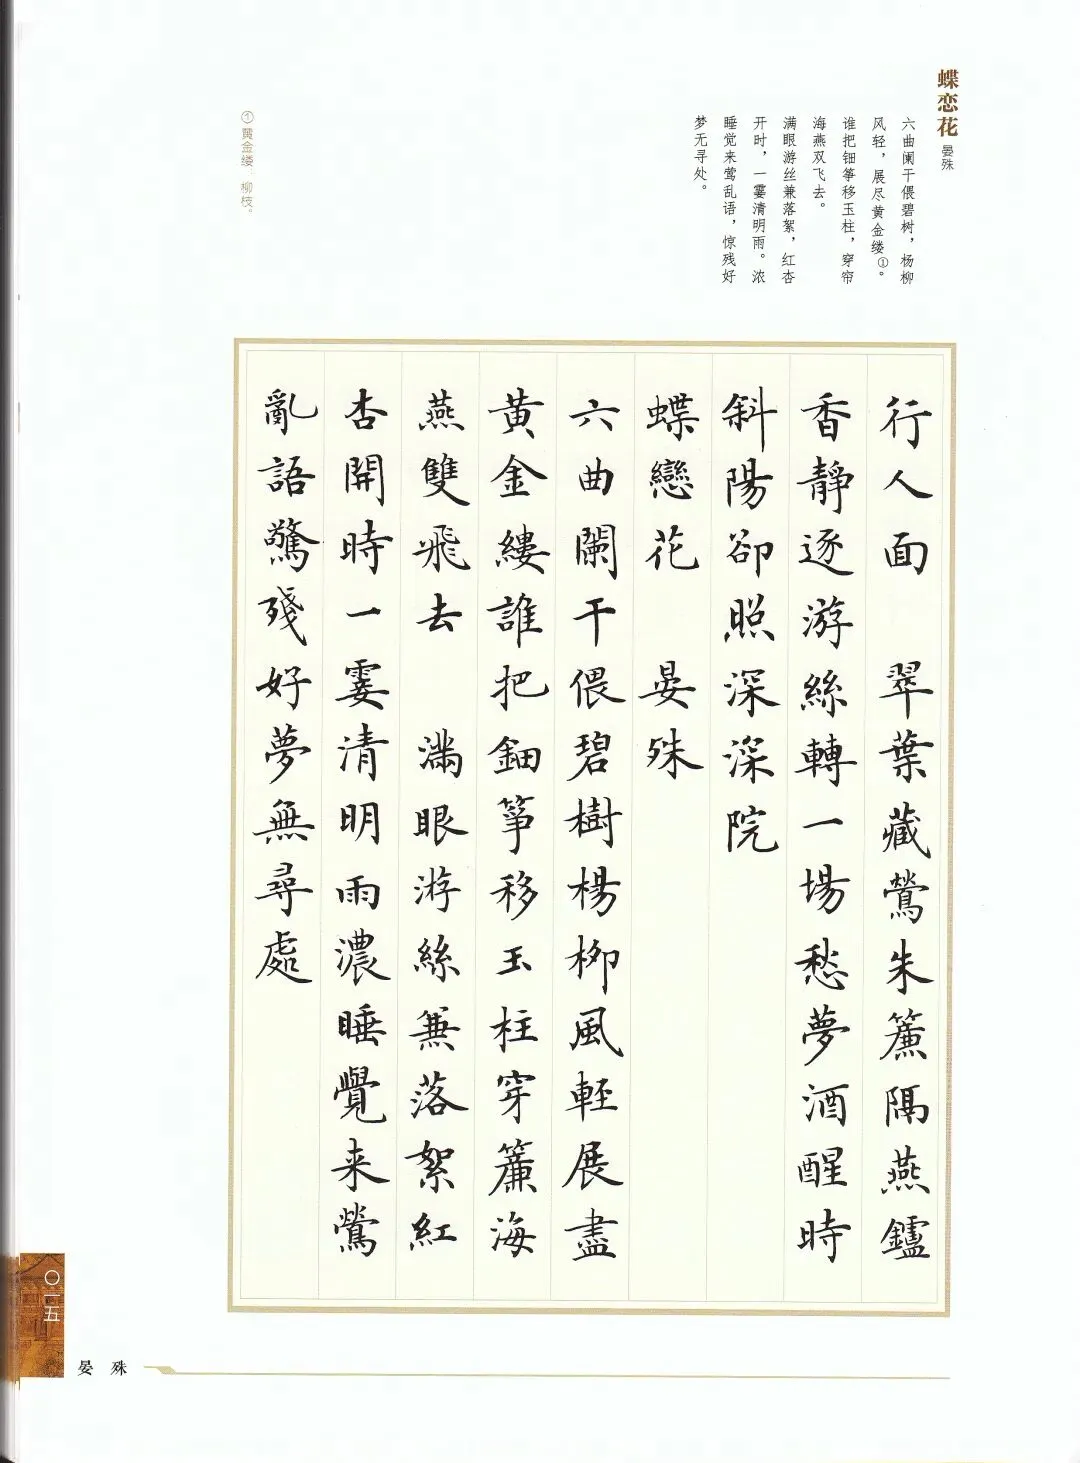 蝶恋花
晏殊
六曲阑干偎碧树，杨柳
风轻，展尽黄金缕①。
谁把钿筝移玉柱，穿帘
海燕双飞去。
满眼游丝兼落絮，红杏
开时，一霎清明雨。浓
睡觉来莺乱语，惊残好
梦无寻处。
①黄金缕：柳枝。
行人面　翠葉藏鶯朱簾隔燕鑪
香靜逐游絲轉一場愁夢酒醒時
斜陽卻照深深院
蝶戀花　晏殊
六曲闌干偎碧樹楊柳風輕展盡
黄金縷誰把鈿筝移玉柱穿簾海
燕雙飛去　滿眼游絲兼落絮紅
杏開時一霎清明雨濃睡覺来鶯
亂語驚殘好夢無尋處
〇一五
晏殊